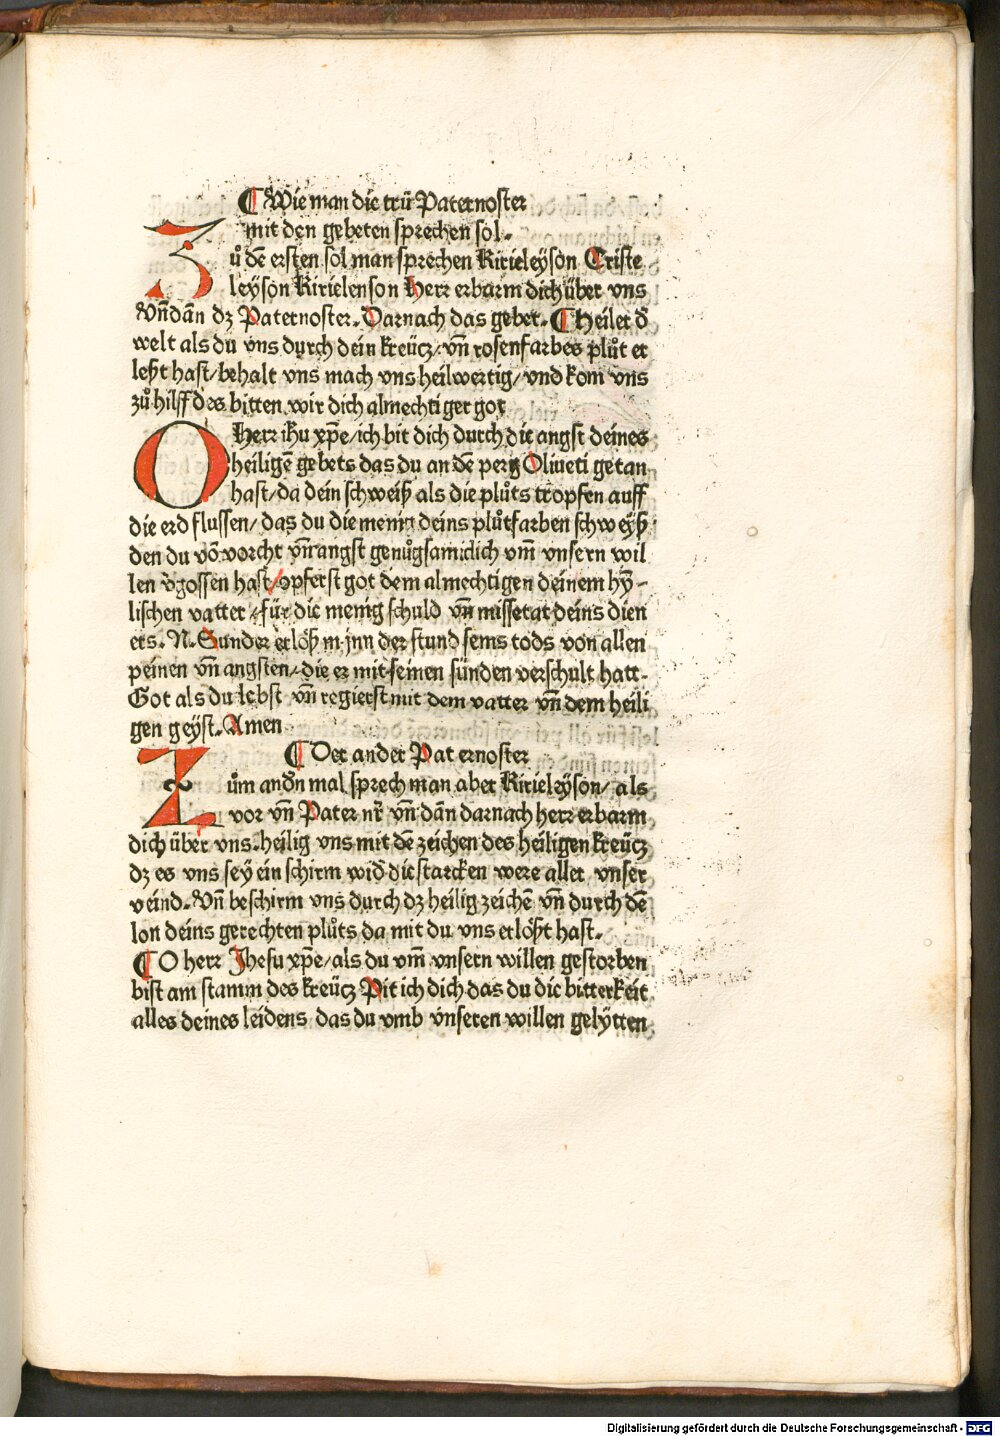 ¶ Wie man die trü Paternoster
mit den gebeten sprechen sol.
Zů dē ersten sol man sprechen Kirieleyson Criste
leyson Kirielenson Herr erbarm dich über vns
Vn̄ dān dz Paternoster. Darnach das gebet. ¶ Heiler d̄
welt als du vns durch dein kreücz/ vn̄ rosenfarbes plůt er
leßt hast/ behalt vns mach vns heilwertig/ vnd kom vns
zů hilff des bitten wir dich almechtiger got
O Herr ihu xp̄e/ ich bit dich durch die angst deines
heiligē gebets das du an dē perg Oliueti getan
hast/ da dein schweiß als die plůts tropfen auff
die erd flussen/ das du die menig deins plůtfarben schweyß
den du vō vorcht vn̄ angst genůgsamiclich vm̄ vnsern wil
len v̄gossen hast/ opferst got dem almechtigen deinem hȳ-
lischen vatter/ für die menig schuld vn̄ missetat deins dien
ers. N. Sunder erlöß in jnn der stund seins tods von allen
peinen vn̄ angsten/ die er mit seinen sünden verschult hatt.
Got als du lebst vn̄ regierst mit dem vatter vn̄ dem heili
gen geyst. Amen
¶ Der ander Pater noster
Zům and̄n mal sprech man aber Kirieleyson/ als
vor vn̄ Pater nr̄ vn̄ dān darnach herr erbarm
dich über vns. heilig vns mit dē zeichen des heiligen kreücz
dz es vns sey ein schirm wid̄ die starcken were aller vnser
veind. Vn̄ beschirm vns durch dz heilig zeichē vn̄ durch dē
lon deins gerechten plůts da mit du vns erlößt hast.
¶ O herr Jhesu xp̄e/ als du vm̄ vnsern willen gestorben
bist am stamm des kreücz Pit ich dich das du die bitterkeit
alles deines leidens das du vmb vnseren willen gelytten
Digitalisierung gefördert durch die Deutsche Forschungsgemeinschaft - DFG